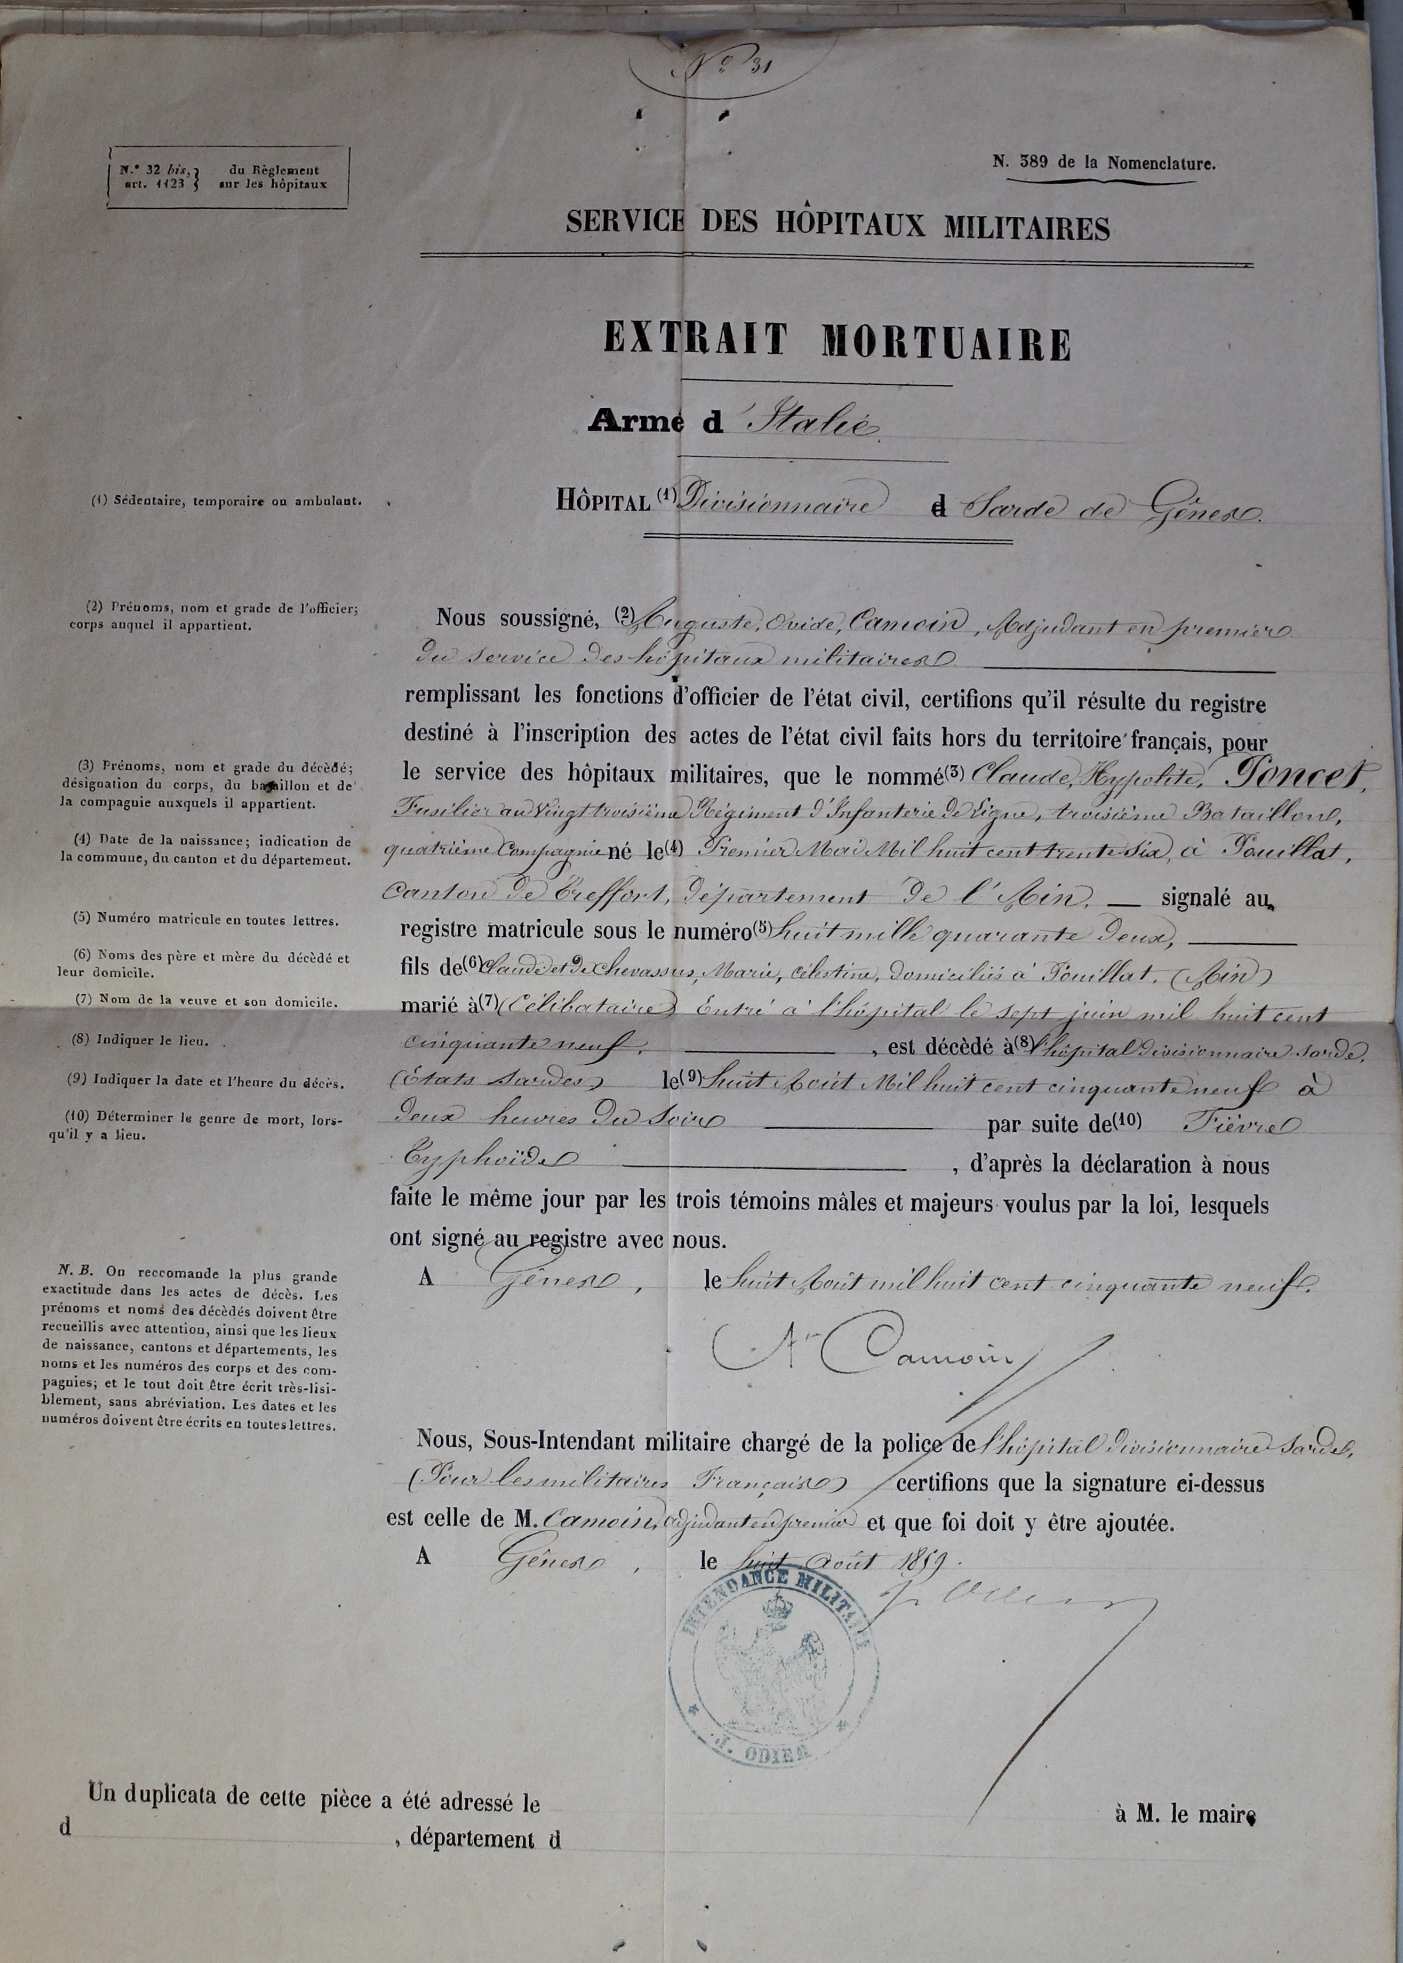 Nº 31
N.º 32 bis, du Règlement
art. 1123 sur les hôpitaux
N. 389 de la Nomenclature.
SERVICE DES HÔPITAUX MILITAIRES
EXTRAIT MORTUAIRE
Armé d'Italie
(1) Sédentaire, temporaire ou ambulant.
HÔPITAL (1) Divisionnaire d Sarde de Gênes.
(2) Prénoms, nom et grade de l'officier;
corps auquel il appartient.
Nous soussigné, (2) Auguste, Ovide, Camoin, Adjudant en premier
du service des hôpitaux militaires
remplissant les fonctions d'officier de l'état civil, certifions qu'il résulte du registre
destiné à l'inscription des actes de l'état civil faits hors du territoire français, pour
(3) Prénoms, nom et grade du décèdé;
désignation du corps, du bataillon et de
la compagnie auxquels il appartient.
le service des hôpitaux militaires, que le nommé (3) Claude, Hypolite, Poncet,
Fusilier au Vingt troisième Régiment d'Infanterie de Ligne, troisième Bataillon,
(4) Date de la naissance; indication de
la commune, du canton et du département.
quatrième Compagnie né le (4) Premier Mai Mil huit cent trente six, à Pouillat,
Canton de Treffort, département de l'Ain. — signalé au
(5) Numéro matricule en toutes lettres.
registre matricule sous le numéro (5) huit mille quarante deux,
(6) Noms des père et mère du décèdé et
leur domicile.
fils de (6) Claude et de Chevassus, Marie, Célestine, domiciliés à Pouillat. (Ain)
(7) Nom de la veuve et son domicile.
marié à (7) (Célibataire) Entré à l'hôpital le sept juin mil huit cent
(8) Indiquer le lieu.
cinquante neuf. , est décèdé à (8) l'hôpital divisionnaire sarde.
(9) Indiquer la date et l'heure du décès.
(États Sardes) le (9) huit Août Mil huit cent cinquante neuf à
(10) Déterminer le genre de mort, lors-
qu'il y a lieu.
deux heures du soir par suite de (10) Fièvre
Typhoïde , d'après la déclaration à nous
faite le même jour par les trois témoins mâles et majeurs voulus par la loi, lesquels
ont signé au registre avec nous.
N. B. On reccomande la plus grande
exactitude dans les actes de décès. Les
prénoms et noms des décèdés doivent être
recueillis avec attention, ainsi que les lieux
de naissance, cantons et départements, les
noms et les numéros des corps et des com-
pagnies; et le tout doit être écrit très-lisi-
blement, sans abréviation. Les dates et les
numéros doivent être écrits en toutes lettres.
A Gênes, le huit Août mil huit cent cinquante neuf.
Camoin
Nous, Sous-Intendant militaire chargé de la police de l'hôpital divisionnaire Sarde,
(Pour les militaires Français) certifions que la signature ci-dessus
est celle de M. Camoin, adjudant en premier et que foi doit y être ajoutée.
A Gênes, le huit août 1859.
INTENDANCE MILITAIRE
J. ODIER
Un duplicata de cette pièce a été adressé le à M. le maire
d , département d